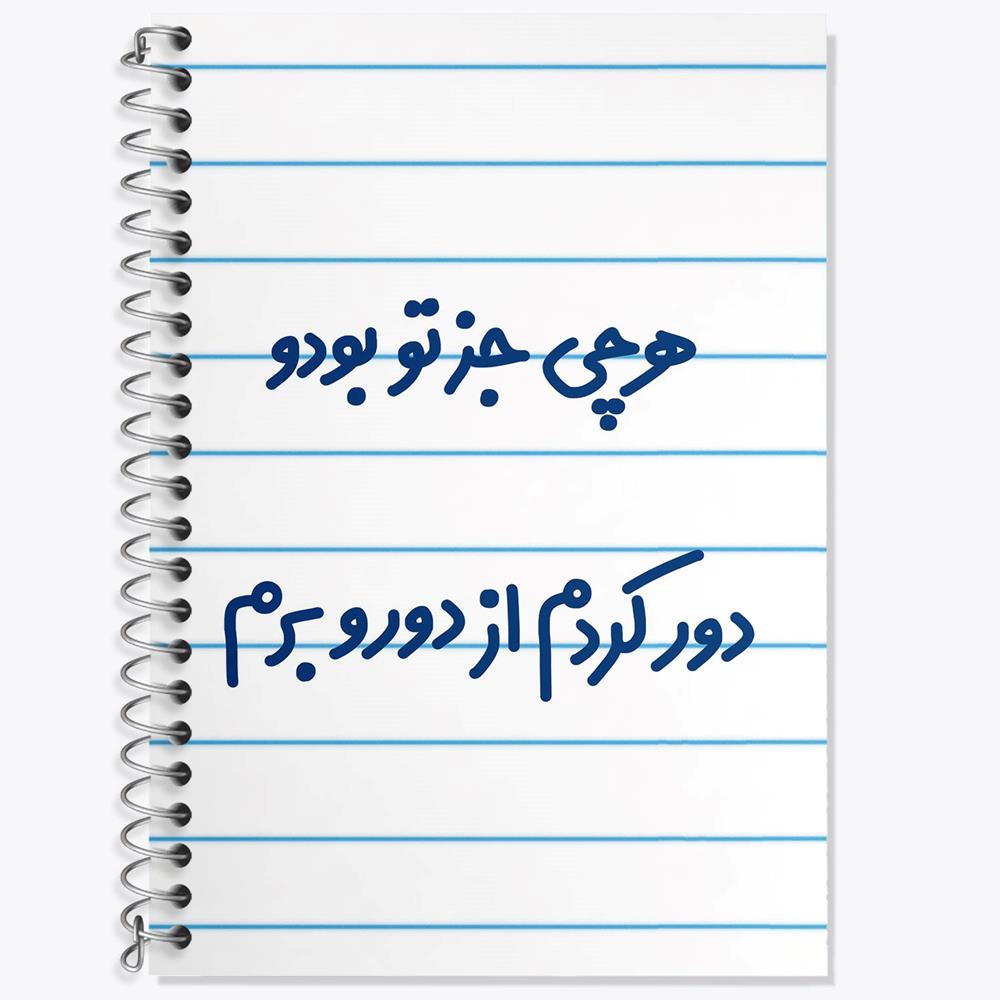 هرچی جز تو بودو
دور کردم از دورو برم